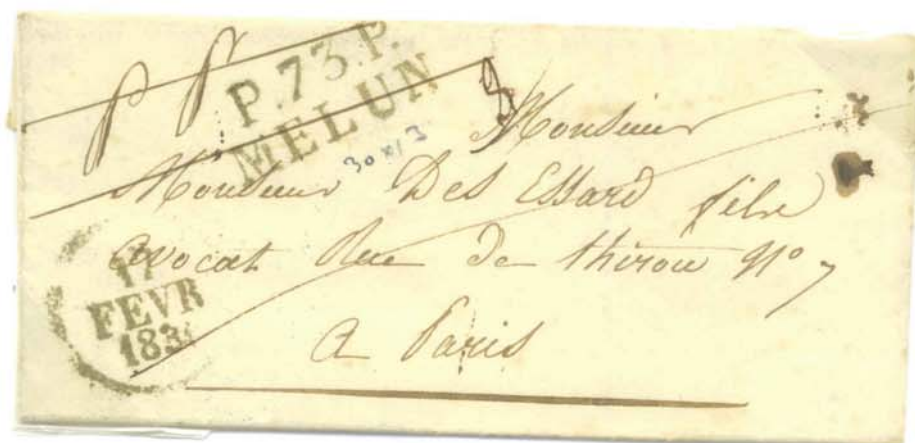 P P
P.73.P.
MELUN
Monsieur
Monsieur Des Essard fils
avocat Rue de thirou N° 7
a Paris
17
FEVR
183